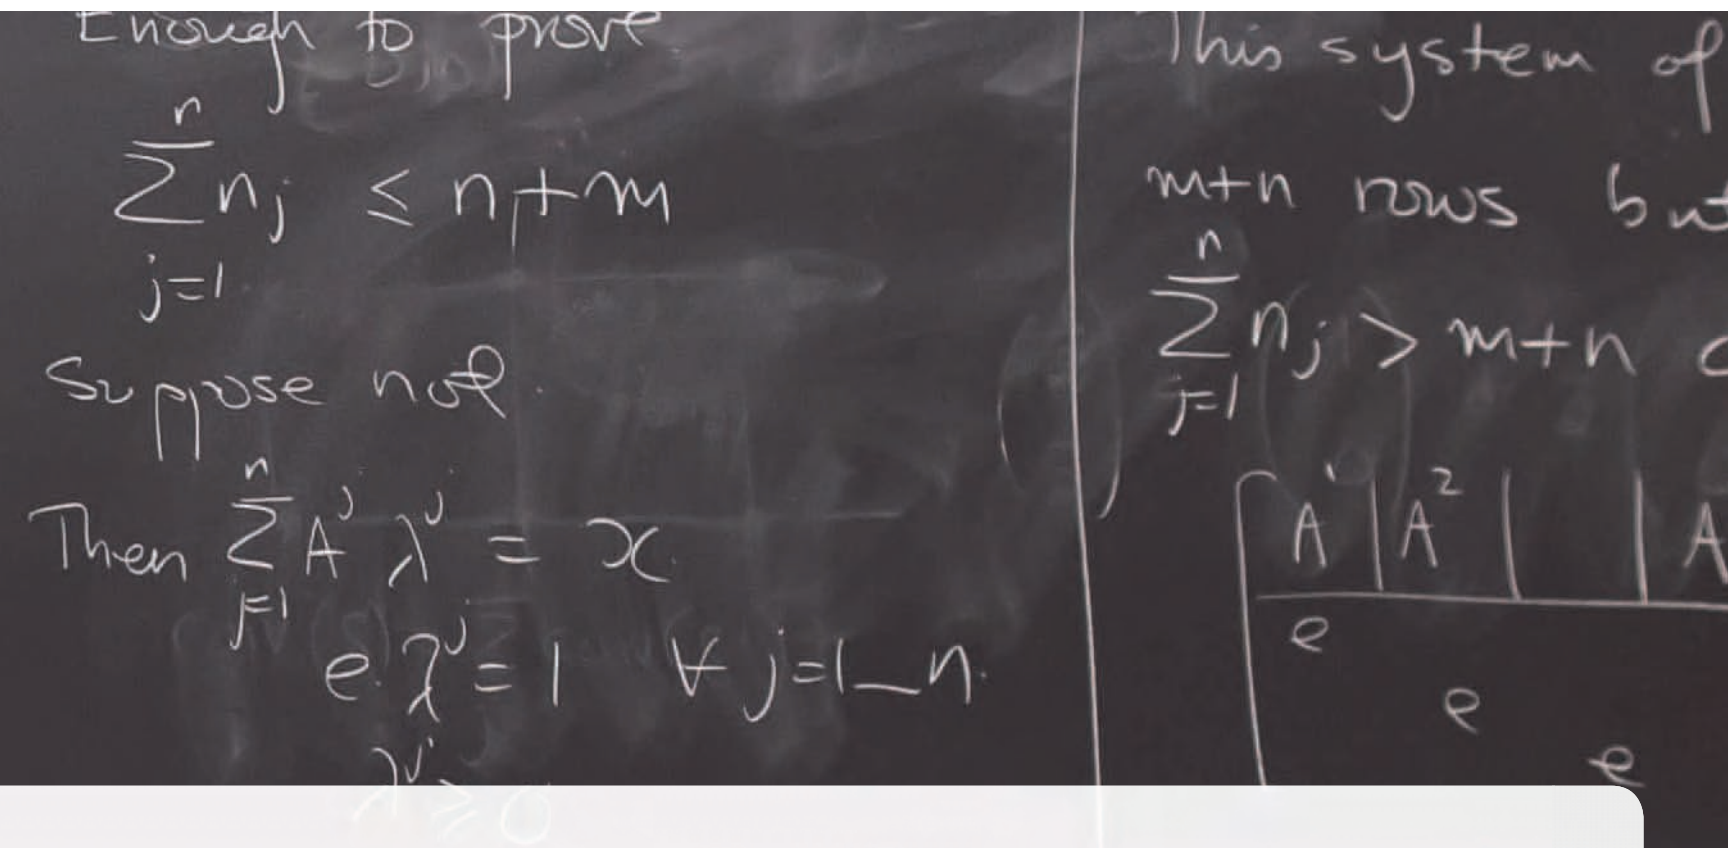 Enough to prove
n
∑ nj ≤ n+m
j=1
Suppose not.
n
Then ∑ A^j λ^j = x
j=1
e.λ^j = 1 ∀ j=1_n.
λ^j ≥ 0
This system of
m+n rows but
n
∑ nj > m+n
j=1
A^1 | A^2 | | A
e
e
e